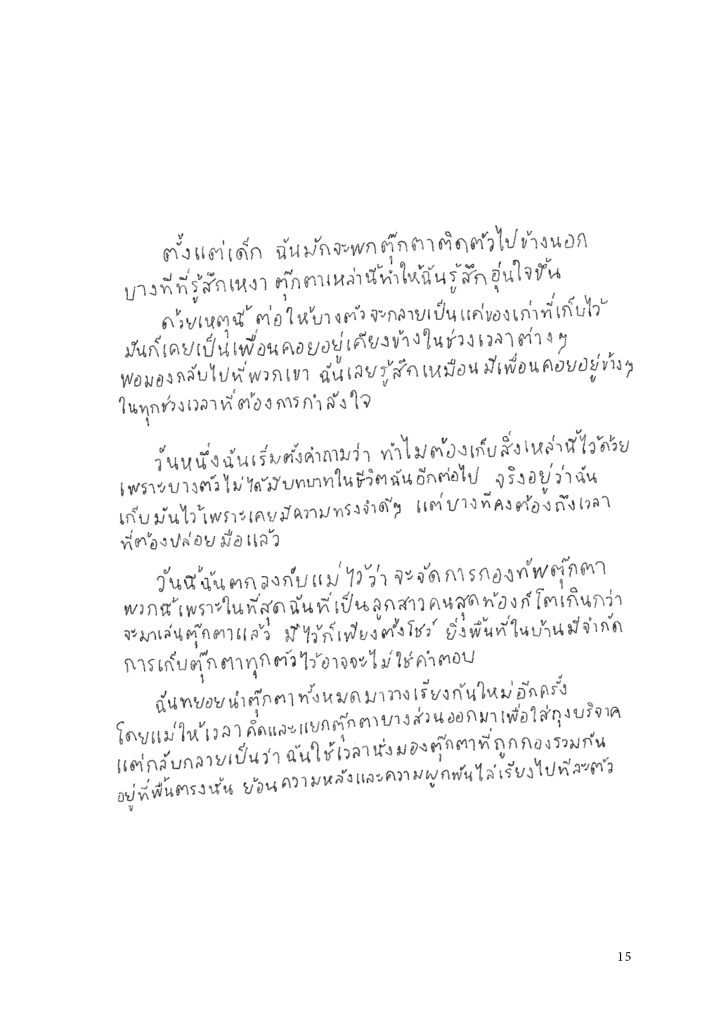 ตั้งแต่เด็ก ฉันมักจะพกตุ๊กตาติดตัวไปข้างนอก
บางทีที่รู้สึกเหงา ตุ๊กตาเหล่านี้ทำให้ฉันรู้สึกอุ่นใจขึ้น
ด้วยเหตุนี้ ต่อให้บางตัวจะกลายเป็นแค่ของเก่าที่เก็บไว้
มันก็เคยเป็นเพื่อนคอยอยู่เคียงข้างในช่วงเวลาต่างๆ
พอมองกลับไปที่พวกเขา ฉันเลยรู้สึกเหมือนมีเพื่อนคอยอยู่ข้างๆ
ในทุกช่วงเวลาที่ต้องการกำลังใจ
วันหนึ่งฉันเริ่มตั้งคำถามว่า ทำไมต้องเก็บสิ่งเหล่านี้ไว้ด้วย
เพราะบางตัวไม่ได้มีบทบาทในชีวิตฉันอีกต่อไป จริงอยู่ว่าฉัน
เก็บมันไว้เพราะเคยมีความทรงจำดีๆ แต่บางทีคงต้องถึงเวลา
ที่ต้องปล่อยมือแล้ว
วันนี้ฉันตกลงกับแม่ไว้ว่า จะจัดการกองทัพตุ๊กตา
พวกนี้เพราะในที่สุดฉันที่เป็นลูกสาวคนสุดท้องก็โตเกินกว่า
จะมาเล่นตุ๊กตาแล้ว มีไว้ก็เพียงตั้งโชว์ ยิ่งพื้นที่ในบ้านมีจำกัด
การเก็บตุ๊กตาทุกตัวไว้อาจจะไม่ใช่คำตอบ
ฉันทยอยนำตุ๊กตาทั้งหมดมาวางเรียงกันใหม่อีกครั้ง
โดยแม่ให้เวลาคิดและแยกตุ๊กตาบางส่วนออกมาเพื่อใส่ถุงบริจาค
แต่กลับกลายเป็นว่า ฉันใช้เวลานั่งมองตุ๊กตาที่ถูกกองรวมกัน
อยู่ที่พื้นตรงนั้น ย้อนความหลังและความผูกพันไล่เรียงไปทีละตัว
15